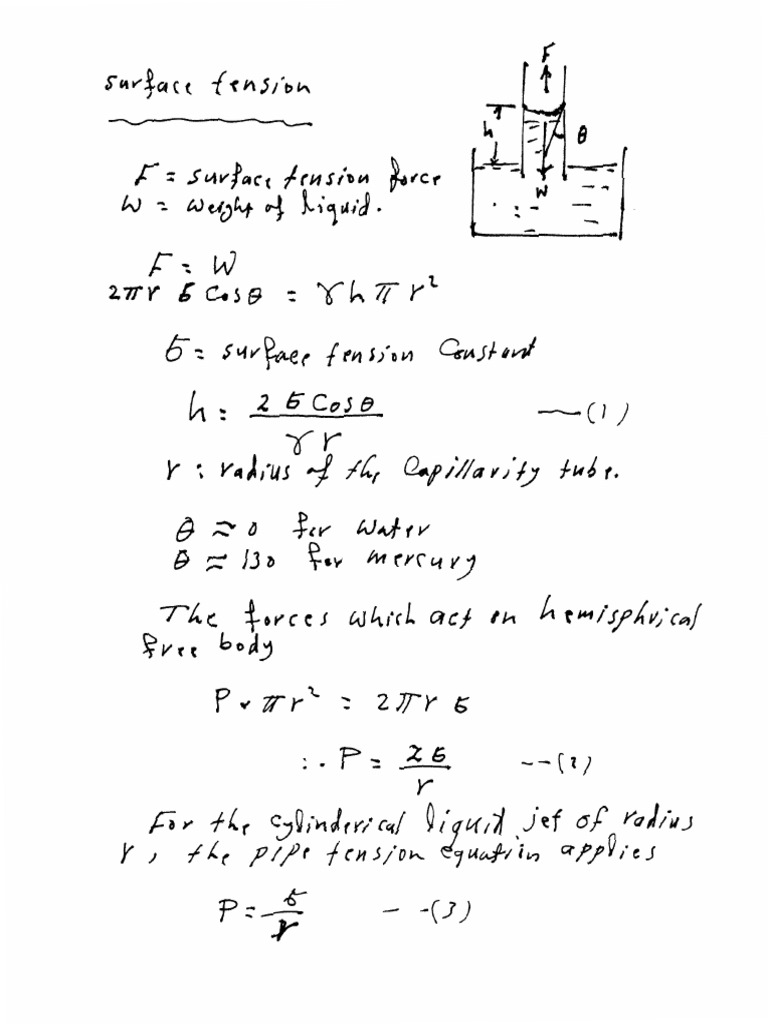 surface tension
F
h
θ
W
F = surface tension force
W = weight of liquid.
F = W
2πr σ Cosθ = γ h π r²
σ = surface tension Constant
h = 2 σ Cosθ / γ r —(1)
r : radius of the Capillarity tube.
θ ≈ 0 for water
θ ≈ 130 for mercury
The forces which act on hemisphrical
free body
P * πr² = 2πr σ
∴ P = 2σ / r --(2)
For the cylinderical liquid jet of radius
r, the pipe tension equation applies
P = σ / r - -(3)